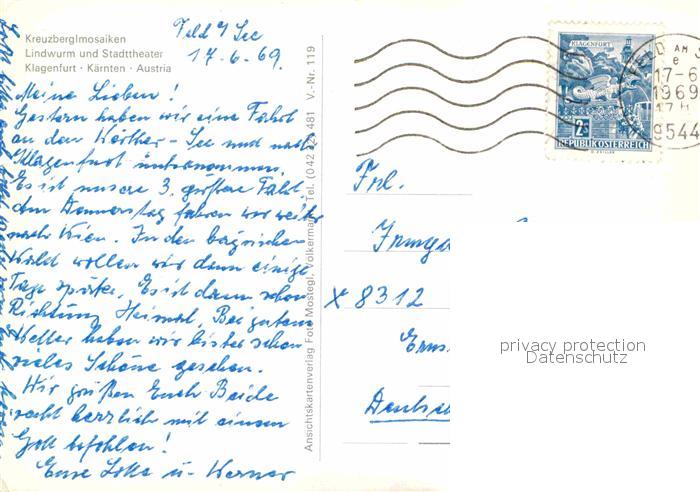 Kreuzberglmosaiken
Lindwurm und Stadttheater
Klagenfurt · Kärnten · Austria
Feld a/ See
17.6.69.
Meine Lieben!
Gestern haben wir eine Fahrt
an den Wörther-See und nach
Klagenfurt unternommen.
Es ist unsere 3. größere Fahrt
dem Donnerstag fahren wir weiter
nach Wien. In den bayrischen
Wald wollen wir dann einige
Tage später. Es ist dann schon
Richtung Heimat. Bei gutem
Wetter haben wir bisher schon
vieles Schöne gesehen.
Wir grüßen Euch Beide
recht herzlich mit einem
Gott befohlen!
Eure Lotte u. Werner
Ansichtskartenverlag Foto Mostegl, Völkermarkt, Tel. (042 481 V.-Nr. 119
KLAGENFURT
2s
REPUBLIK ÖSTERREICH
FELD AM S
e
17-6
1969
17 H
9544
Frl.
Irmga
X 8312
Erns
Deutsc
privacy protection
Datenschutz